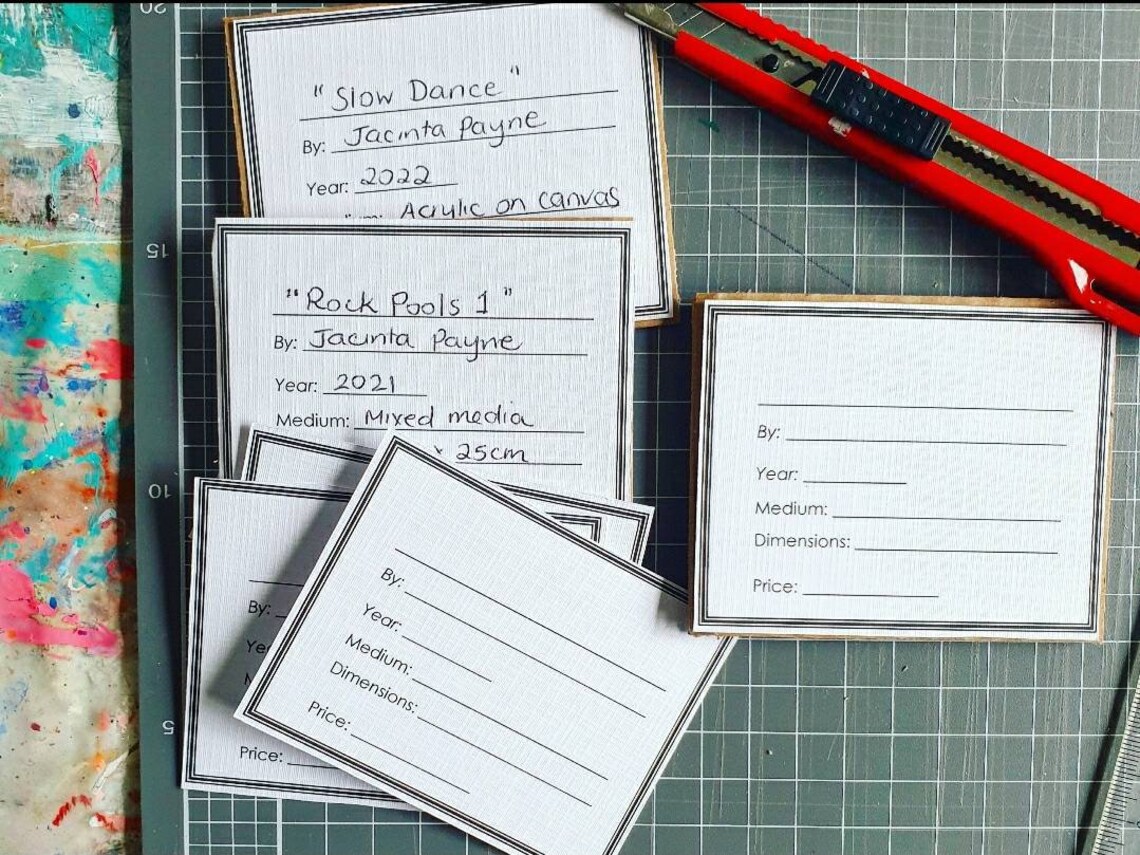 20
15
10
5
"Slow Dance"
By: Jacinta Payne
Year: 2022
Acrylic on canvas
"Rock Pools 1"
By: Jacinta Payne
Year: 2021
Medium: Mixed media
x 25cm
By:
Year:
Medium:
Dimensions:
Price:
By:
Ye
Price:
By:
Year:
Medium:
Dimensions:
Price: